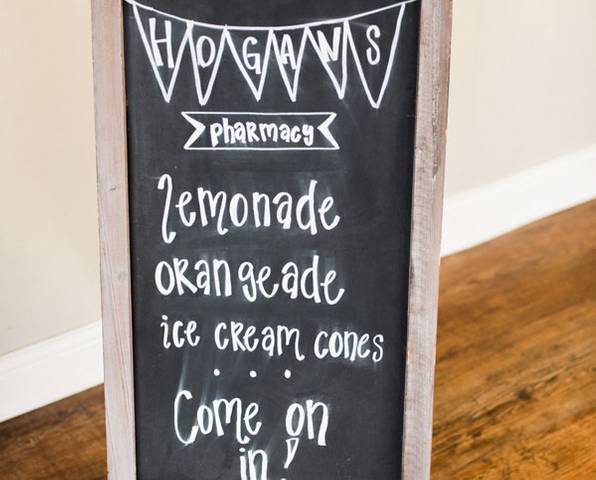 HOGANS
pharmacy
lemonade
orangeade
ice cream cones
...
Come on
in!